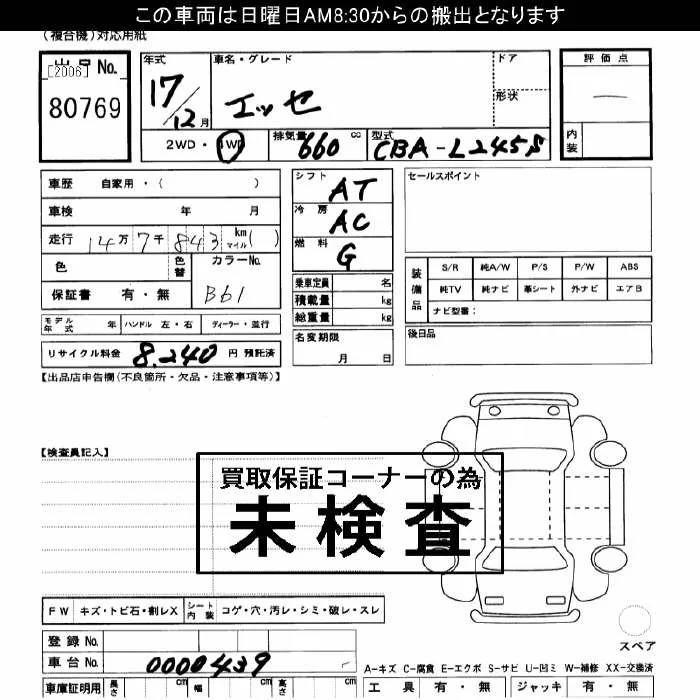 この車両は日曜日AM8:30からの搬出となります
(複合機)対応用紙
出品No.
[2006]
80769
年式
17/12月
車名・グレード
エッセ
ドア
形状
評価点
内装
2WD・4WD
排気量 660 cc
型式 CBA-L245S
車歴 自家用・( )
車検 年 月
走行 14万7千843 km マイル( )
色
色替
カラーNo.
B61
保証書 有・無
モデル年式 年 ハンドル 左・右 ディーラー・並行
リサイクル料金 8,240 円 預託済
シフト AT
冷房 AC
燃料 G
乗車定員 名
積載量 kg
総重量 kg
名変期限
月 日
セールスポイント
装備品
S/R 純A/W P/S P/W ABS
純TV 純ナビ 革シート 外ナビ エアB
ナビ型番:
後日品
【出品店申告欄(不良箇所・欠品・注意事項等)】
【検査員記入】
買取保証コーナーの為
未検査
FW キズ・トビ石・割レX シート内装 コゲ・穴・汚レ・シミ・破レ・スレ
登録No.
車台No. 0000439
車庫証明用 長さ cm 幅 cm 高さ cm
スペア
A-キズ C-腐食 E-エクボ S-サビ U-凹ミ W-補修 XX-交換済
工具 有・無 ジャッキ 有・無